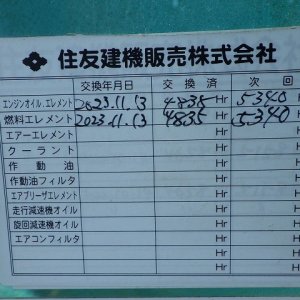 住友建機販売株式会社
交換年月日 交換済 次回
エンジンオイル、エレメント 2023.11.13 4835 Hr 5340 Hr
燃料エレメント 2023.11.13 4835 Hr 5340 Hr
エアーエレメント Hr Hr
クーラント Hr Hr
作動油 Hr Hr
作動油フィルタ Hr Hr
エアブリーザエレメント Hr Hr
走行減速機オイル Hr Hr
旋回減速機オイル Hr Hr
エアコンフィルタ Hr Hr